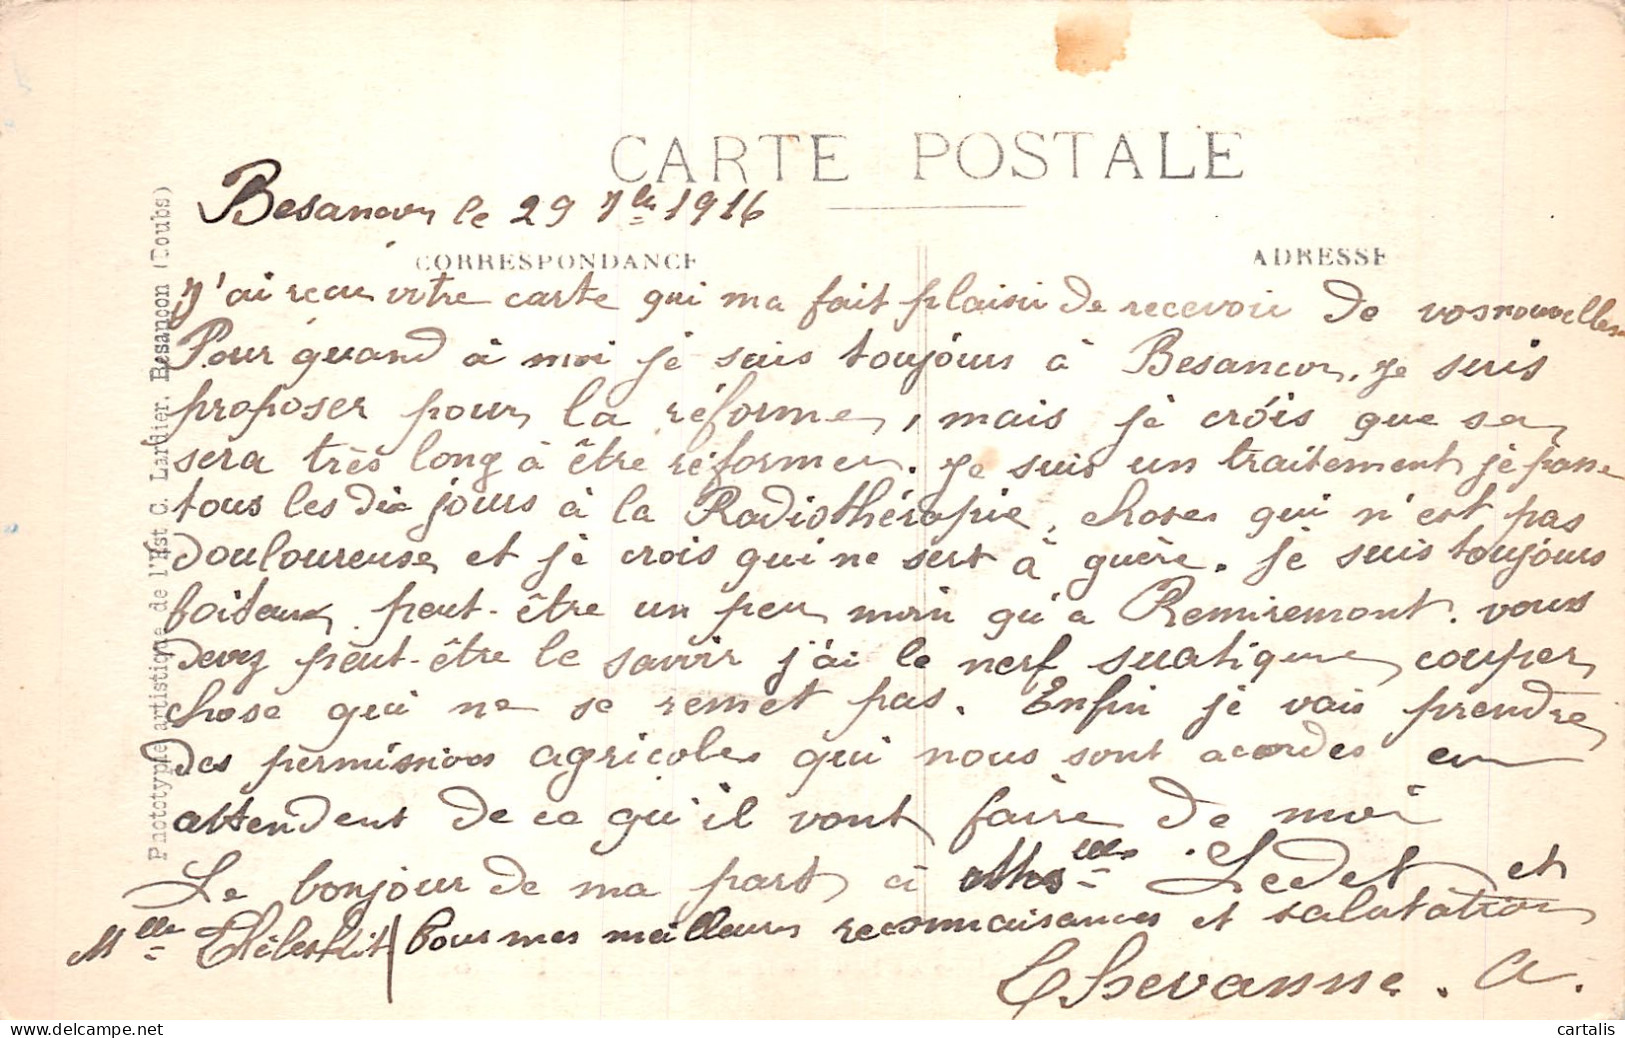 CARTE POSTALE
Besancon le 29 7bre 1916
CORRESPONDANCE
ADRESSE
J'ai recu votre carte qui ma fait plaisir de recevoir de vos nouvelles
Pour quand à moi je suis toujours à Besancon, je suis
proposer pour la réforme, mais je crois que sa
sera très long à être réformer. Je suis un traitement je passe
tous les dix jours à la Radiothérapie, chose qui n'est pas
douloureuse et je crois qui ne sert à guère. Je suis toujours
boiteux peut-être un peu moin qu'a Remiremont. vous
devez peut-être le savoir j'ai le nerf suatique couper
chose qui ne se remet pas. Enfin je vais prendre
des permissions agricoles qui nous sont acordes en
attendent de ce qu'il vont faire de moi
Le bonjour de ma part à Ledet et
Mlle Célestit / Pour mes meilleures reconnaisances et salutation
Chevanne. A.
Phototypie artistique de l'Est C. Lardier, Besançon (Doubs)
cartalis